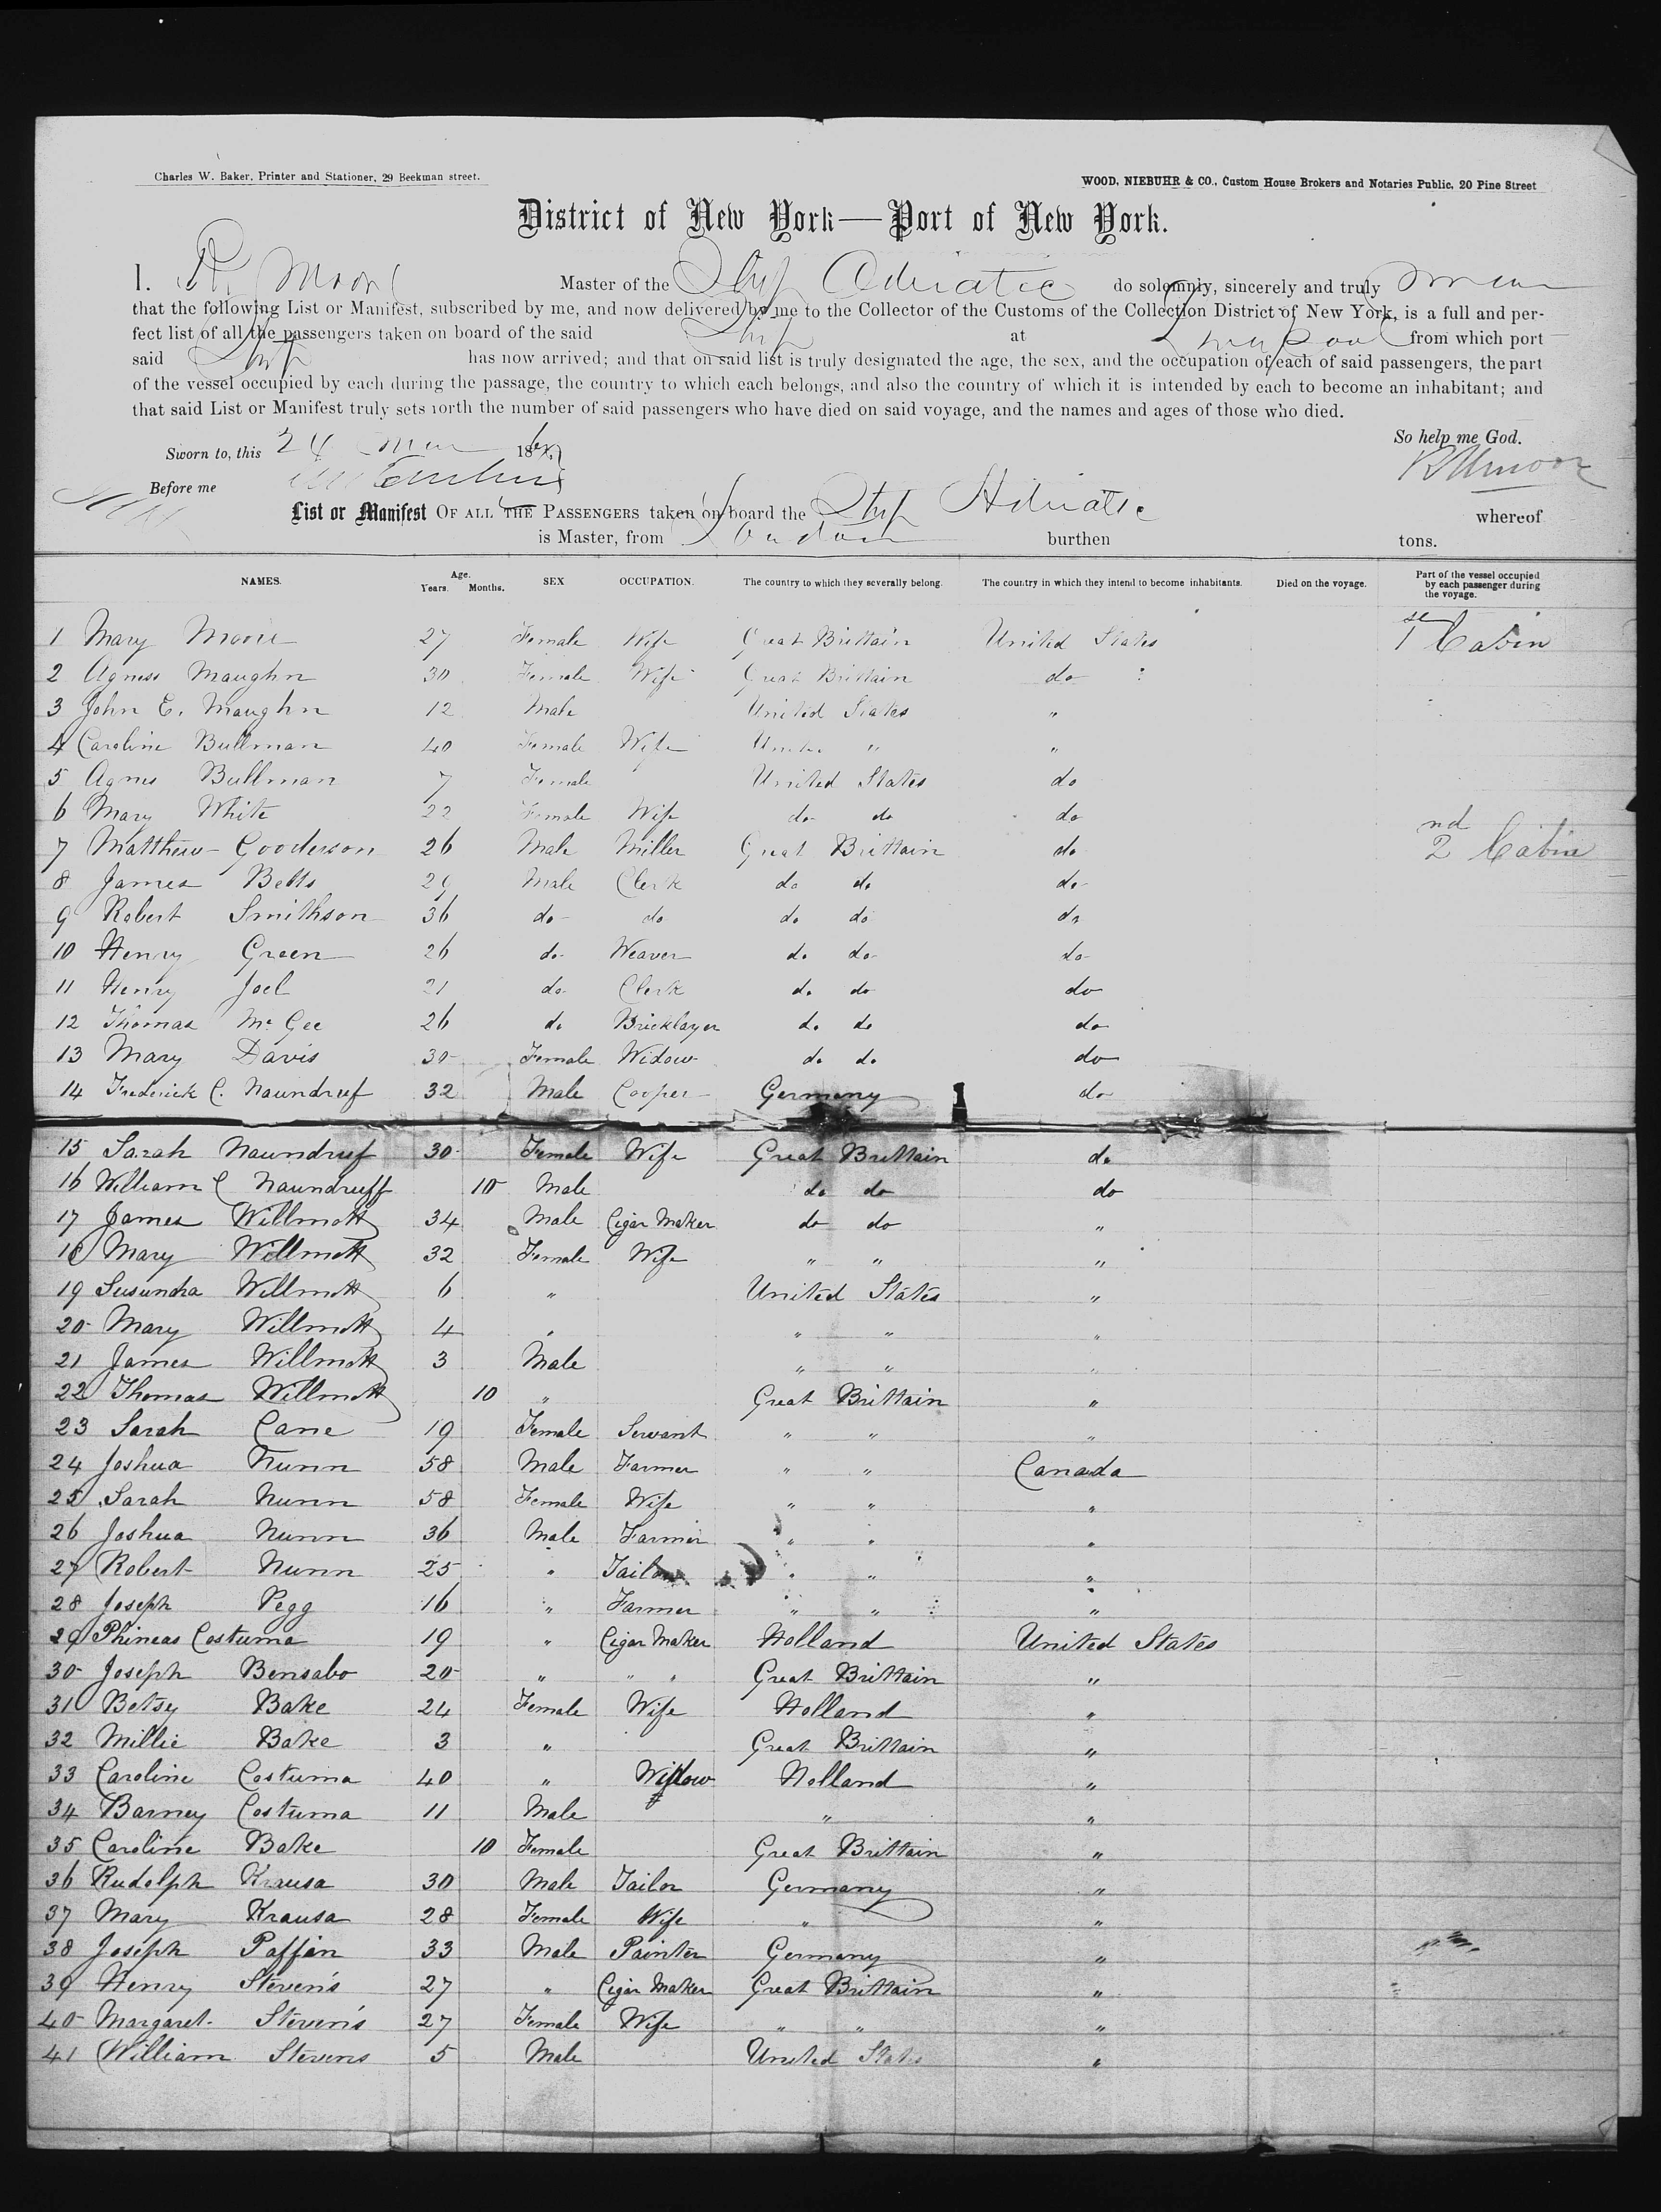 Charles W. Baker, Printer and Stationer, 29 Beekman street.
WOOD, NIEBUHR & CO., Custom House Brokers and Notaries Public, 20 Pine Street
District of New York—Port of New York.
I. Moore Master of the Ship Adriatic do solemnly, sincerely and truly swear
that the following List or Manifest, subscribed by me, and now delivered by me to the Collector of the Customs of the Collection District of New York, is a full and per-
fect list of all the passengers taken on board of the said Ship at from which port
said Ship has now arrived; and that on said list is truly designated the age, the sex, and the occupation of each of said passengers, the part
of the vessel occupied by each during the passage, the country to which each belongs, and also the country of which it is intended by each to become an inhabitant; and
that said List or Manifest truly sets forth the number of said passengers who have died on said voyage, and the names and ages of those who died.
So help me God.
Sworn to, this 24 186
Before me
List or Manifest OF ALL THE PASSENGERS taken on board the Ship Adriatic whereof
is Master, from London burthen tons.
NAMES. Age. Years. Months. SEX OCCUPATION. The country to which they severally belong. The country in which they intend to become inhabitants. Died on the voyage. Part of the vessel occupied by each passenger during the voyage.
1 Mary Moore 27 Female Wife Great Brittain United States 1 st Cabin
2 Agness Maughn 30 Female Wife Great Brittain do
3 John E. Maughn 12 Male United States "
4 Caroline Bullman 40 Female Wife United " "
5 Agnes Bullman 7 Female United States do
6 Mary White 22 Female Wife do do do
7 Matthew Gooderson 26 Male Miller Great Brittain do 2 nd Cabin
8 James Betts 29 Male Clerk do do do
9 Robert Smithson 36 do do do do do
10 Henry Green 26 do Weaver do do do
11 Henry Joel 21 do Clerk do do do
12 Thomas Mc Gee 26 do Bricklayer do do do
13 Mary Davis 30 Female Widow do do do
14 Frederick C. Naundruf 32 Male Cooper Germany do
15 Sarah Naundruf 30 Female Wife Great Brittain do
16 William C Naundruff 10 Male do do do
17 James Willmott 34 Male Cigar Maker do do "
18 Mary Willmott 32 Female Wife " " "
19 Susundra Willmott 6 " United States "
20 Mary Willmott 4 " " " "
21 James Willmott 3 Male " " "
22 Thomas Willmott 10 " Great Brittain "
23 Sarah Cane 19 Female Servant " " "
24 Joshua Nunn 58 Male Farmer " " Canada
25 Sarah Nunn 58 Female Wife " " "
26 Joshua Nunn 36 Male Farmer " " "
27 Robert Nunn 25 " Tailor " " "
28 Joseph Pegg 16 " Farmer " " "
29 Phineas Costuma 19 " Cigar Maker Holland United States
30 Joseph Bensabo 20 " " " Great Brittain "
31 Betsy Bake 24 Female Wife Holland "
32 Millie Bake 3 " Great Brittain "
33 Caroline Costuma 40 " Widow Holland "
34 Barney Costuma 11 Male " "
35 Caroline Bake 10 Female Great Brittain "
36 Rudolph Krausa 30 Male Tailor Germany "
37 Mary Krausa 28 Female Wife " "
38 Joseph Paffin 33 Male Painter Germany "
39 Henry Steven's 27 " Cigar Maker Great Brittain "
40 Margaret Steven's 27 Female Wife " " "
41 William Stevens 5 Male United States "